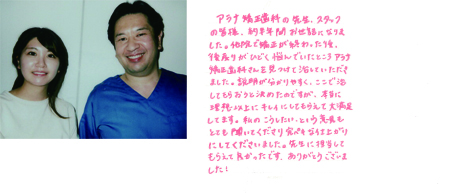 アラタ矯正歯科の先生、スタッフ
の皆様、約半年間お世話になりま
した。他院で矯正が終わった後、
後戻りがひどく悩んでいたところアラタ
矯正歯科さんを見つけて治していただき
ました。説明が分かりやすく、ここで治
してもらおうと決めたのですが、本当に
理想以上にキレイにしてもらえて大満足
してます。私のこうしたい、という意見も
とても聞いてくださり完ペキな仕上がり
にしてくださいました。先生に担当して
もらえて良かったです。ありがとうございま
した!